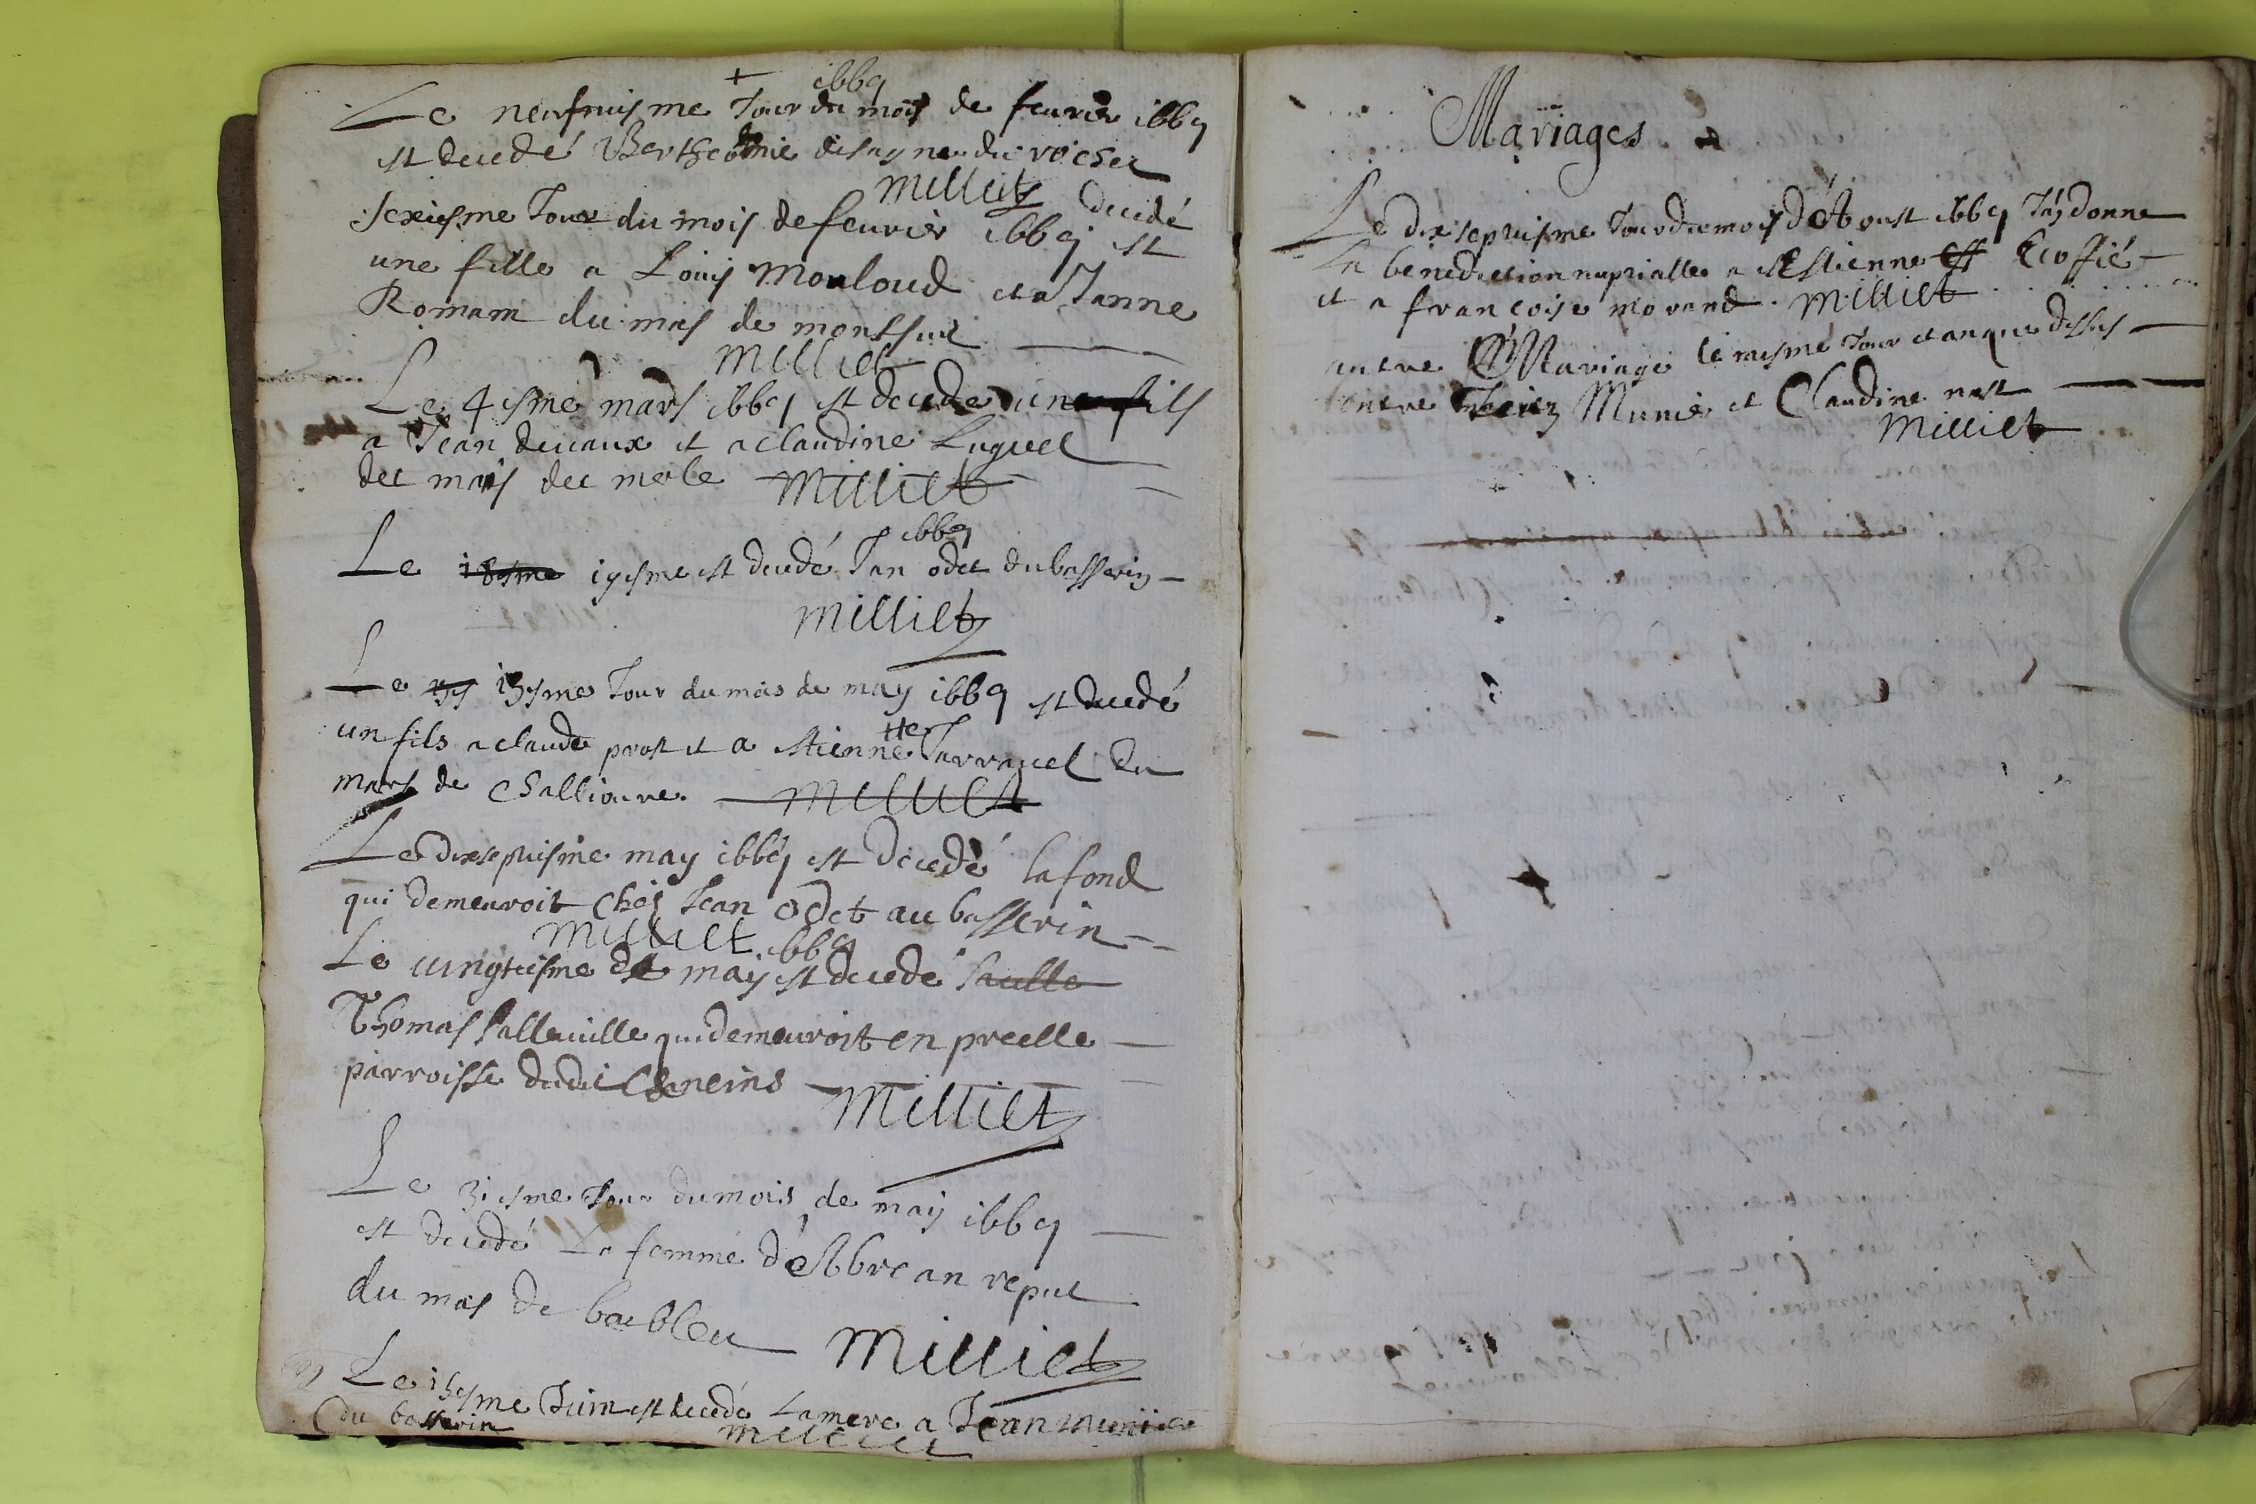 + ibb9
Le neufuiesme Jour du mois de feurier ibb9
est decedé Bertheomie desagne du rocher
Milliet
sexiesme Jour du mois de feurier ibb9 est decedé
une fille a Louis Mouloud et a Janne
Romam du mas de montsur
Milliet
Le 4esme mars ibb9 est decede un fils
a Jean deuaux et a claudine Luguel
dec mais dec merle Milliet
ibb9
Le 18esme 19esme est decedé Jan odet du basserin
Milliet
Le 15esme Jour du mois de may ibb9 est decedé
un fils a claude prost et a Estiennette Jarracel du
mars de challioure Milliet
Le dixsepuisme may ibb9 est decedé lafond
qui demeuroit chez Jean odet au basserin
Milliet ibb9
Le uingtiesme de may est decedé
Thomas Salleuille qui demeuroit en preelle
parroisse dudit Chaneins Milliet
Le 31esme Jour du mois de may ibb9
est decedé La femme d'Abrean reput
du mas de baubleu Milliet
Le 15esme Juin est decedé La mere a Jean munier
du basserin Milliet
Mariages
Le dixsepuisme Jour du mois d'Aoust ibb9 J'ay donne
La benediction nuptialle a Estienne Ecoffié
et a françoise morand. Milliet
autre Mariage le mesme Jour et an que dessus
entre Munier et Claudine nast
Milliet